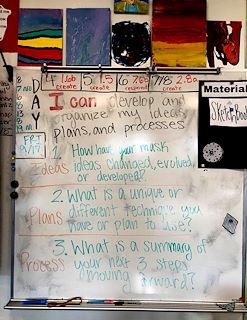 4 1.0b
5 1.5
6
7/8 2.2
create
create
create
DAY
FRI
9/17
I can develop and
organize my ideas
plans, and processes
Ideas
1. How have your mask
ideas changed, evolved,
or developed?
Plans
2. What is a unique or
different technique you
have or plan to use?
Process
3. What is a summary of
your next 3 steps
moving forward?
Material
Sketchbook